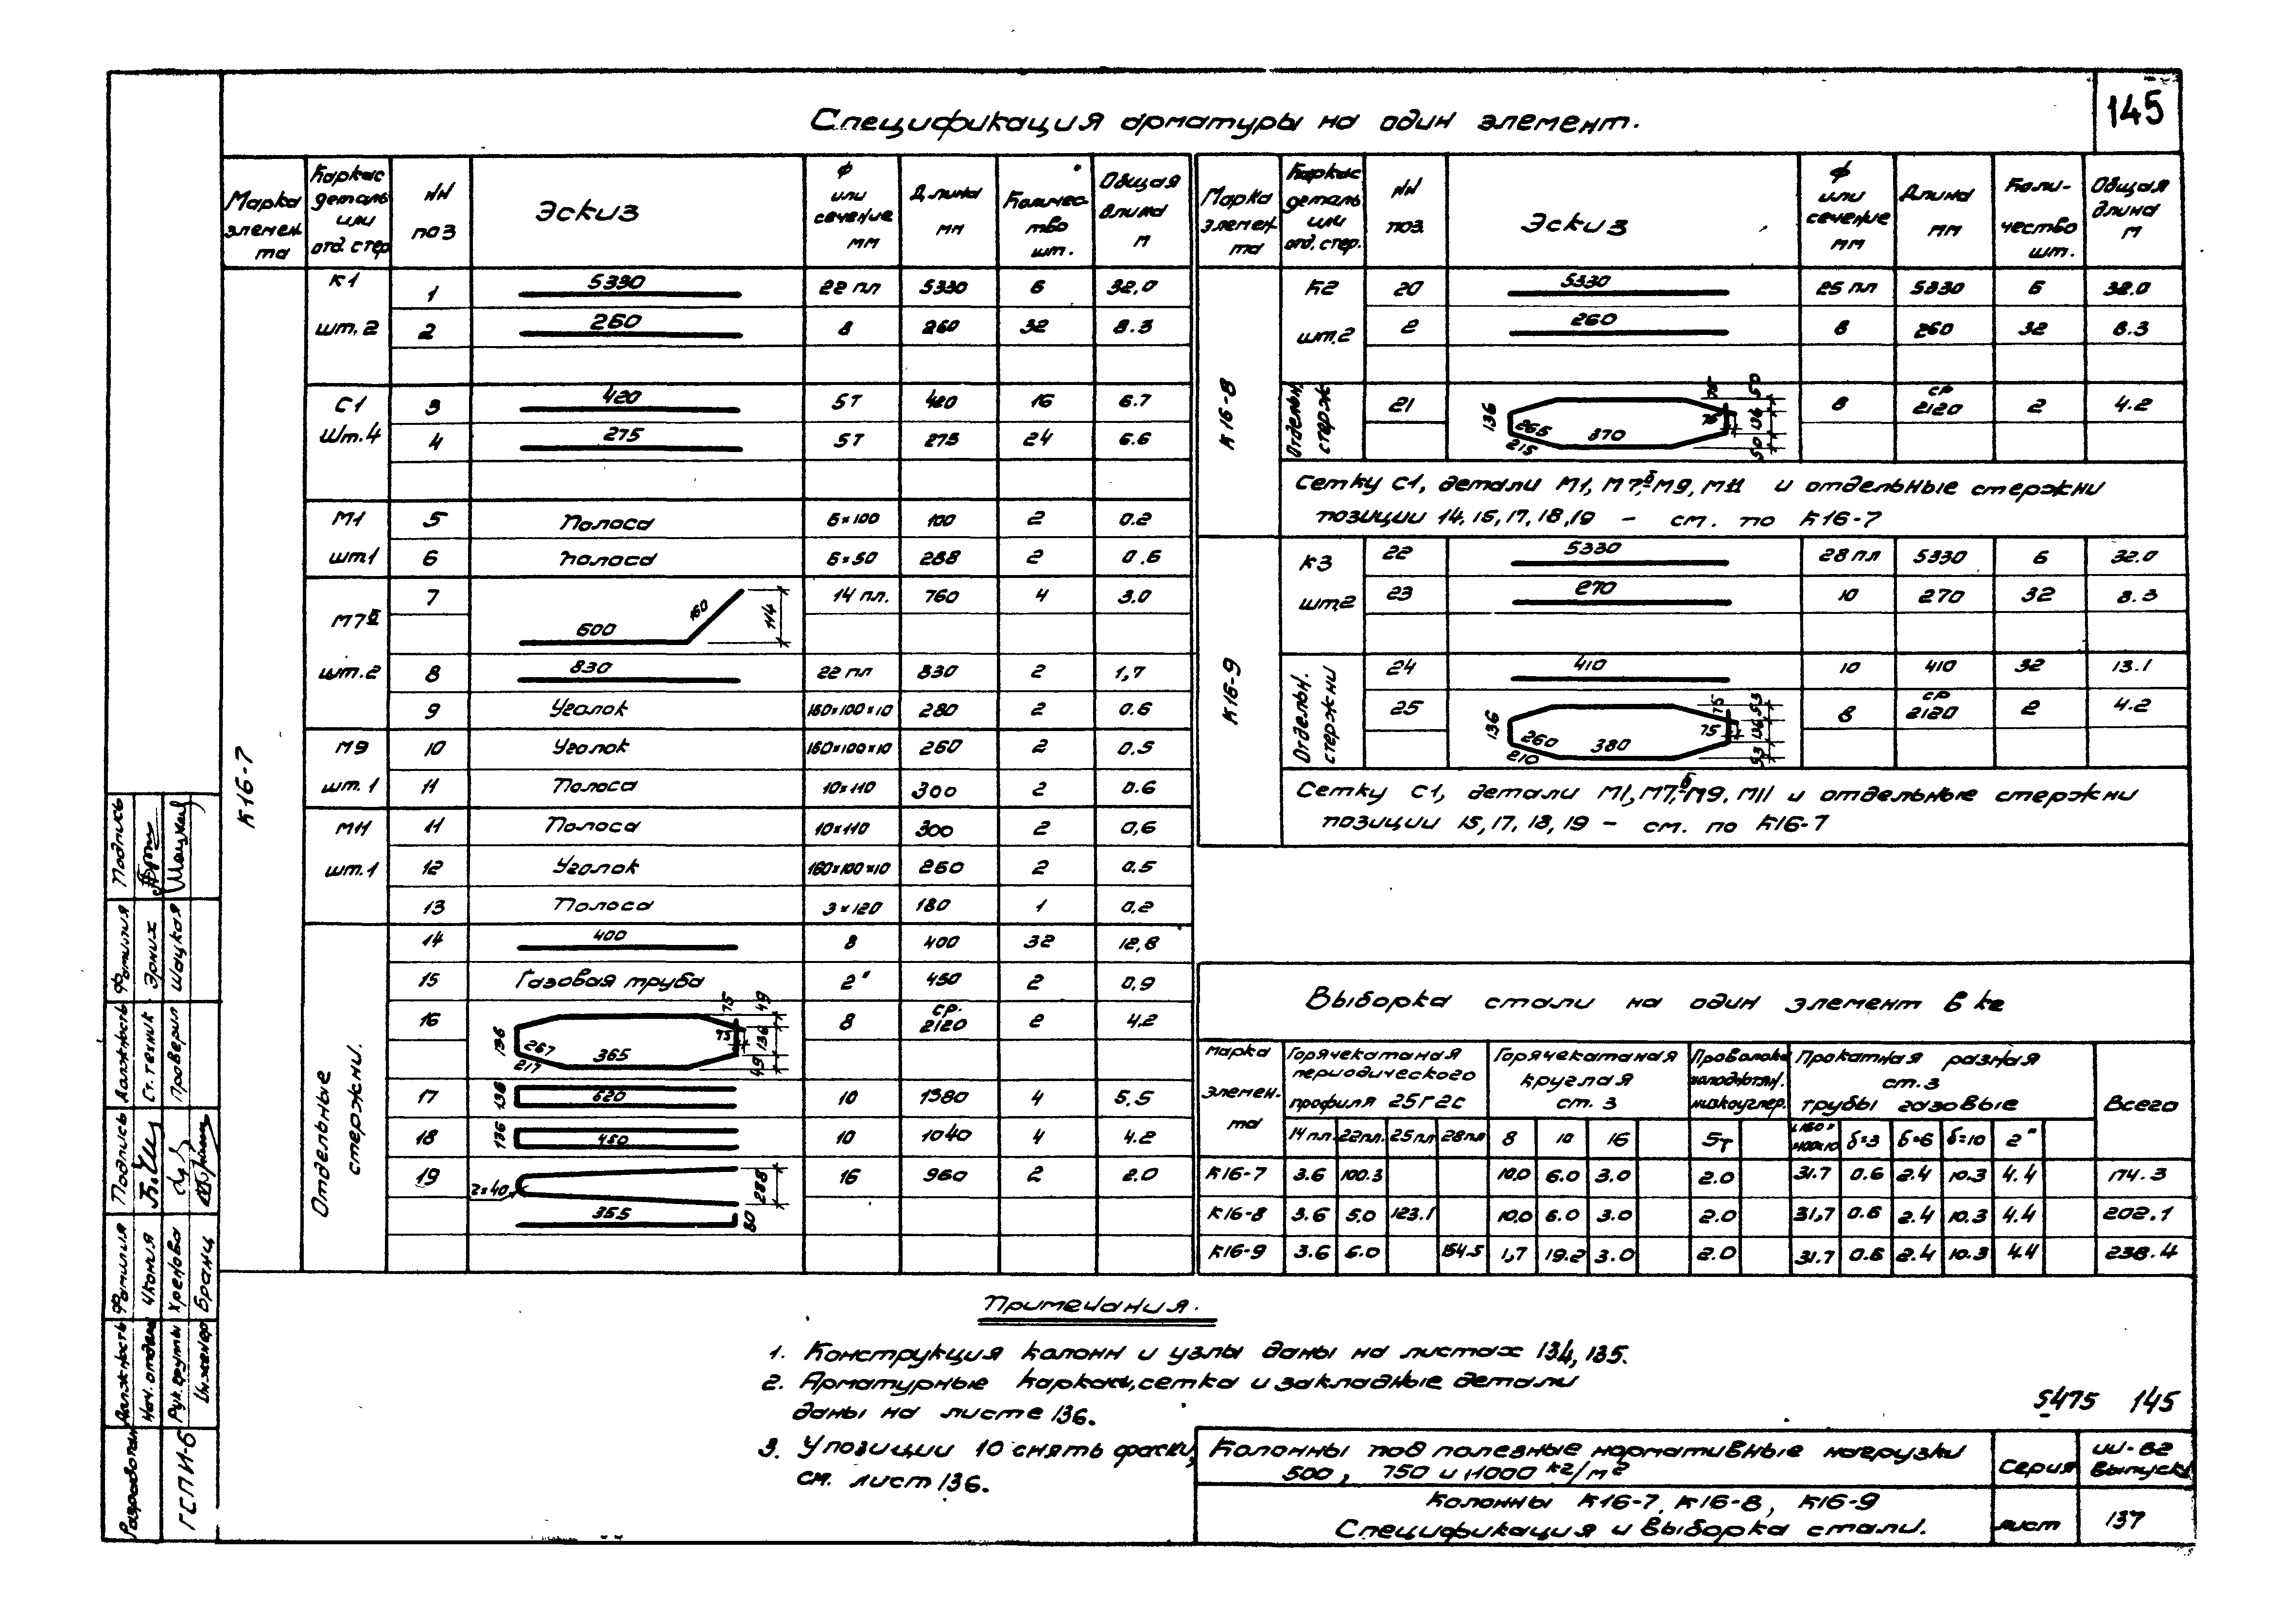 145
Спецификация арматуры на один элемент.
Марка элемен та | Каркас деталь или отд. стер | NN поз | Эскиз | ф или сечение мм | Длина мм | Количес- тво шт. | Общая длина м
К16-7
К1 шт. 2 | 1 | 5330 | 22 пл | 5330 | 6 | 32,0
2 | 260 | 8 | 260 | 32 | 8.3
С1 Шт. 4 | 3 | 420 | 5т | 420 | 16 | 6.7
4 | 275 | 5т | 275 | 24 | 6.6
М1 шт1 | 5 | Полоса | 6×100 | 100 | 2 | 0.2
6 | полоса | 6×50 | 288 | 2 | 0.6
шт. 2 | 7 | 600 160 114 | 14 пл. | 760 | 4 | 3.0
8 | 830 | 22 пл | 830 | 2 | 1,7
9 | Уголок | 160×100×10 | 280 | 2 | 0.6
М9 шт. 1 | 10 | Уголок | 160×100×10 | 260 | 2 | 0.5
11 | Полоса | 10×110 | 300 | 2 | 0.6
М11 шт. 1 | 11 | Полоса | 10×110 | 300 | 2 | 0,6
12 | Уголок | 160×100×10 | 260 | 2 | 0.5
13 | Полоса | 3×120 | 180 | 1 | 0,2
Отдельные стержни. | 14 | 400 | 8 | 400 | 32 | 12,8
15 | Газовая труба | 2" | 450 | 2 | 0,9
16 | 136 267 217 365 75 75 49 136 49 | 8 | ср. 2120 | 2 | 4.2
17 | 136 620 | 10 | 1380 | 4 | 5.5
18 | 136 450 | 10 | 1040 | 4 | 4.2
19 | 2=40 288 355 80 | 16 | 960 | 2 | 2.0
Марка элемен та | Каркас деталь или отд. стер. | NN поз. | Эскиз | ф или сечение мм | Длина мм | Коли- чество шт. | Общая длина м
К16-8
К2 шт.2 | 20 | 5330 | 25 пл | 5330 | 6 | 32.0
2 | 260 | 8 | 260 | 32 | 8.3
Отдельн. стерж | 21 | 136 265 215 370 75 75 50 136 50 | 8 | ср 2120 | 2 | 4.2
Сетку С1, детали М1, М7б, М9, М11 и отдельные стержни
позиции 14, 15, 17, 18, 19 – см. по К16-7
К16-9
К3 шт2 | 22 | 5330 | 28 пл | 5330 | 6 | 32.0
23 | 270 | 10 | 270 | 32 | 8.3
Отдельн. стержни | 24 | 410 | 10 | 410 | 32 | 13.1
25 | 136 260 210 380 75 75 53 136 53 | 8 | ср 2120 | 2 | 4.2
Сетку С1, детали М1, М7б, М9, М11 и отдельные стержни
позиции 15, 17, 18, 19 – см. по К16-7
Выборка стали на один элемент в кг
Марка элемен. та | Горячекатаная периодического профиля 25Г2С | Горячекатаная круглая ст. 3 | Проволока холоднотян. низкоуглер. | Прокатная разная ст. 3 трубы газовые | Всего
14 пл. | 22пл. | 25 пл | 28пл | 8 | 10 | 16 | 5т | L160× ×100×10 | δ=3 | δ=6 | δ=10 | 2"
К16-7 | 3.6 | 100.3 | 10,0 | 6.0 | 3,0 | 2.0 | 31.7 | 0.6 | 2.4 | 10.3 | 4.4 | 174.3
К16-8 | 3.6 | 5,0 | 123.1 | 10,0 | 6.0 | 3.0 | 2.0 | 31,7 | 0.6 | 2.4 | 10.3 | 4.4 | 202.1
К16-9 | 3.6 | 5.0 | 154.5 | 1,7 | 19.2 | 3.0 | 2.0 | 31.7 | 0.6 | 2.4 | 10.3 | 4.4 | 238.4
Примечания.
1. Конструкция колонн и узлы даны на листах 134, 135.
2. Арматурные каркасы, сетка и закладные детали
даны на листе 136.
3. У позиции 10 снять фаску,
см. лист 136.
5475 145
Колонны под полезные нормативные нагрузки
500, 750 и 1000 кг/м²
Серия
ИИ-82
Выпуск
Колонны К16-7, К16-8, К16-9
Спецификация и выборка стали.
лист
137
Подпись
Фамилия Эрких Шацкая
Должность Ст. техник Проверил
Подпись
Фамилия Чкония Хренова Бранц
Должность Нач. отдела Рук. группы Инженер
Разработан ГСПИ-6